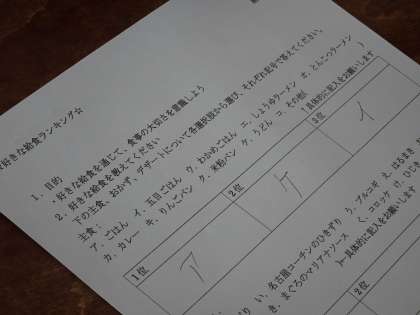 好きな給食ランキング☆
1. 目的
・好きな給食を通じて、食事の大切さを意識しよう
2. 好きな給食を教えてください
下の主食、おかず、デザートについて各選択肢から選び、それぞれ記号で答えてください。
主食：ア. ごはん イ. 五目ごはん ウ. わかめごはん エ. しょうゆラーメン オ. とんこつラーメン
カ. カレー キ. りんごパン ク. 米粉パン ケ. うどん コ. その他(具体的に記入をお願いします)
1位 2位 3位
ア ケ イ
い. 名古屋コーチンのひきずり う. プルコギ え. はるまき
き. まぐろのマリアナソース く. コロッケ け. ひじき
)←具体的に記入をお願いします
2位